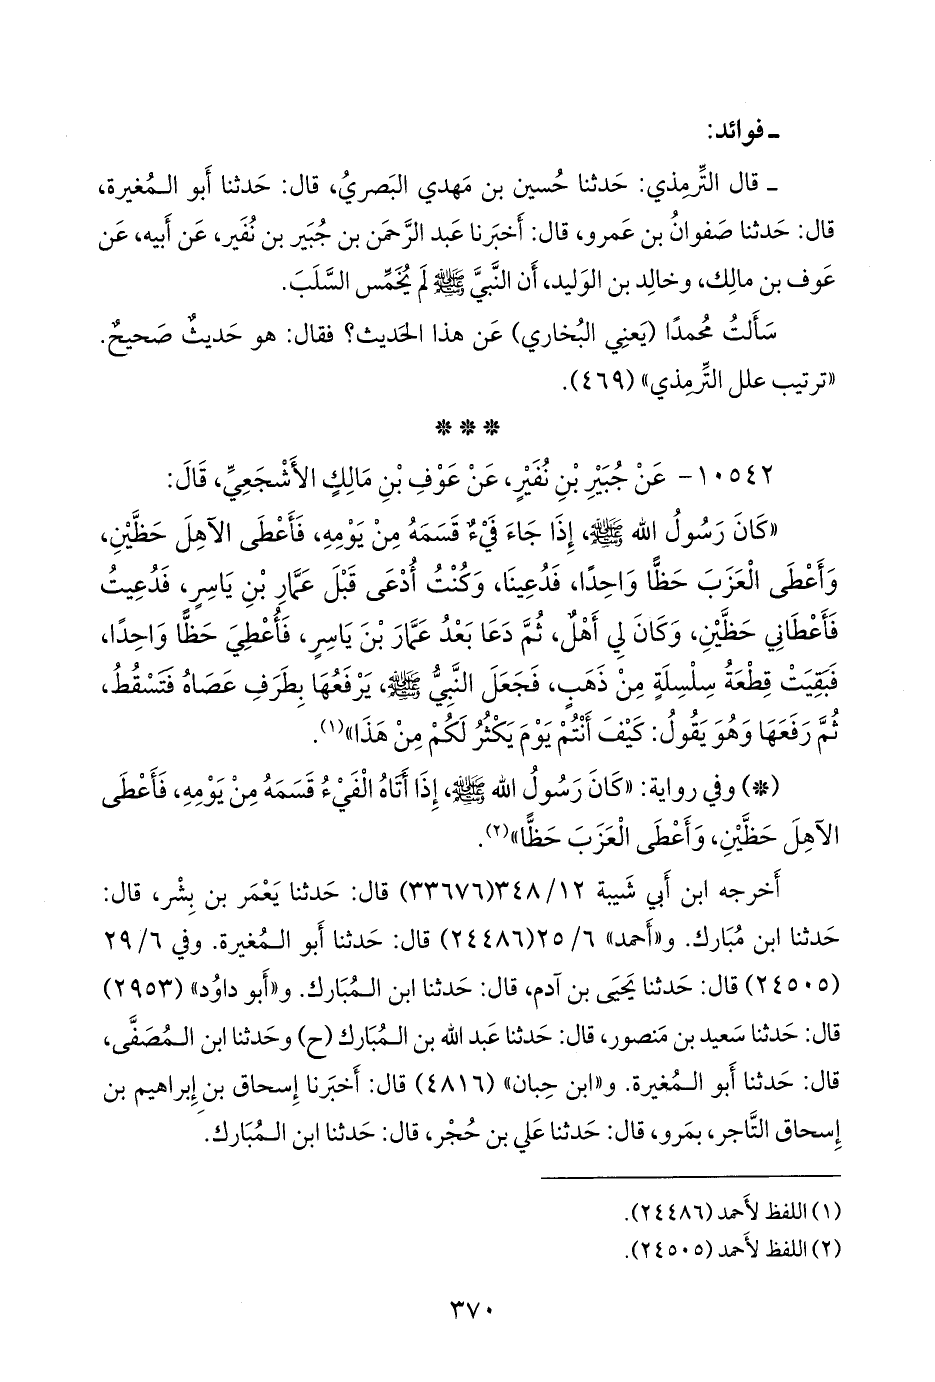 ـ فوائد:
ـ قال التِّرمِذي: حَدثنا حُسين بن مَهدي البَصريُ، قال: حَدثنا أَبو الـمُغيرة،
قال: حَدثنا صَفوانُ بن عَمرو، قال: أَخبَرنا عَبد الرَّحمَن بن جُبَير بن نُفَير، عَن أَبيه، عَن
عَوف بن مالِك، وخالِد بن الوَليد، أَن النَّبيَّ ﷺ لَم يُخَمِّس السَّلَبَ.
سَأَلتُ مُحمدًا (يَعني البُخاري) عَن هذا الحَديث؟ فقال: هو حَديثٌ صَحيحٌ.
«ترتيب علل التِّرمِذي» (٤٦٩).
* * *
١٠٥٤٢- عَنْ جُبَيْرِ بْنِ نُفَيْرٍ، عَنْ عَوْفِ بْنِ مَالِكٍ الأَشْجَعِيِّ، قَالَ:
«كَانَ رَسُولُ الله ﷺ، إِذَا جَاءَ فَيْءٌ قَسَمَهُ مِنْ يَوْمِهِ، فَأَعْطَى الآهِلَ حَظَّيْنِ،
وَأَعْطَى الْعَزَبَ حَظًّا وَاحِدًا، فَدُعِينَا، وَكُنْتُ أُدْعَى قَبْلَ عَمَّارِ بْنِ يَاسِرٍ، فَدُعِيتُ
فَأَعْطَانِي حَظَّيْنِ، وَكَانَ لِي أَهْلٌ، ثُمَّ دَعَا بَعْدُ عَمَّارَ بْنَ يَاسِرٍ، فَأُعْطِيَ حَظًّا وَاحِدًا،
فَبَقِيَتْ قِطْعَةُ سِلْسِلَةٍ مِنْ ذَهَبٍ، فَجَعَلَ النَّبِيُّ ﷺ، يَرْفَعُهَا بِطَرَفِ عَصَاهُ فَتَسْقُطُ،
ثُمَّ رَفَعَهَا وَهُوَ يَقُولُ: كَيْفَ أَنْتُمْ يَوْمَ يَكْثُرُ لَكُمْ مِنْ هَذَا»(١).
(*) وفي رواية: «كَانَ رَسُولُ الله ﷺ، إِذَا أَتَاهُ الْفَيْءُ قَسَمَهُ مِنْ يَوْمِهِ، فَأَعْطَى
الآهِلَ حَظَّيْنِ، وَأَعْطَى الْعَزَبَ حَظًّا»(٢).
أَخرجه ابن أَبي شَيبة ١٢/ ٣٤٨(٣٣٦٧٦) قال: حَدثنا يَعْمَر بن بِشْر، قال:
حَدثنا ابن مُبَارك. و«أَحمد» ٦/ ٢٥(٢٤٤٨٦) قال: حَدثنا أَبو الـمُغيرة. وفي ٦/ ٢٩
(٢٤٥٠٥) قال: حَدثنا يَحيَى بن آدم، قال: حَدثنا ابن الـمُبَارك. و«أَبو داوُد» (٢٩٥٣)
قال: حَدثنا سَعيد بن مَنصور، قال: حَدثنا عَبد الله بن الـمُبَارك (ح) وحَدثنا ابن الـمُصَفَّى،
قال: حَدثنا أَبو الـمُغيرة. و«ابن حِبان» (٤٨١٦) قال: أَخبَرنا إِسحاق بن إِبراهيم بن
إِسحاق التَّاجر، بمَرو، قال: حَدثنا عَلي بن حُجْر، قال: حَدثنا ابن الـمُبَارك.
(١) اللفظ لأَحمد (٢٤٤٨٦).
(٢) اللفظ لأَحمد (٢٤٥٠٥).
٣٧٠